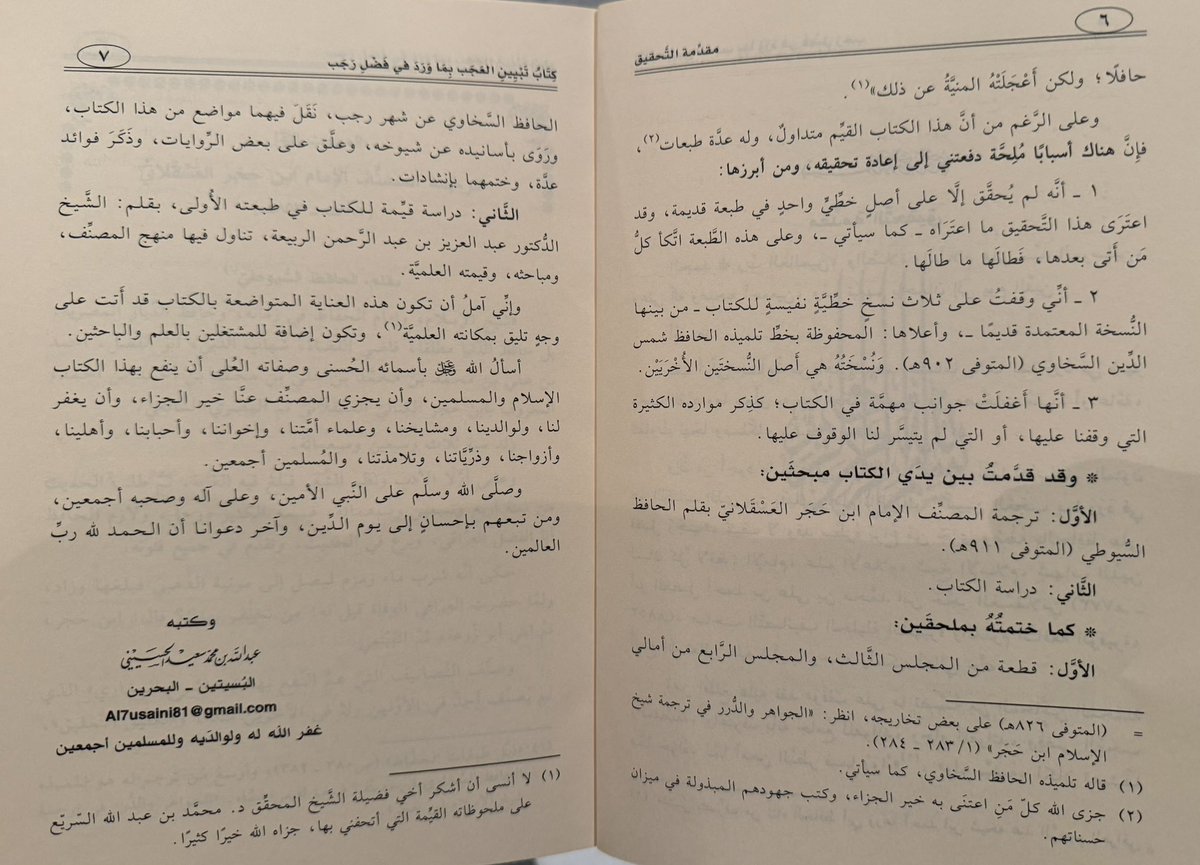 ٦
مقدمة التَّحقيق
حافلًا؛ ولكن أَعْجَلَتْهُ المنيَّةُ عن ذلك»(١).
وعلى الرَّغم من أنَّ هذا الكتاب القيِّم متداولٌ، وله عدَّة طبعات(٢)،
فإنَّ هناك أسبابًا مُلِحَّة دفعتني إلى إعادة تحقيقه، ومن أبرزها:
١ ـ أنَّه لم يُحقَّق إلَّا على أصلٍ خطِّيٍّ واحدٍ في طبعة قديمة، وقد
اعتَرَى هذا التَّحقيق ما اعتَرَاه ـ كما سيأتي ـ، وعلى هذه الطَّبعة اتَّكأ كلُّ
مَن أتَى بعدها، فَطالَها ما طالَها.
٢ ـ أنِّي وقفتُ على ثلاث نسخٍ خطِّيَّةٍ نفيسةٍ للكتاب ـ من بينها
النُّسخة المعتمدة قديمًا ـ، وأعلاها: المحفوظة بخطِّ تلميذه الحافظ شمس
الدِّين السَّخاوي (المتوفى ٩٠٢هـ). وَنُسْخَتُهُ هي أصل النُّسختَين الأُخْرَيَيْن.
٣ ـ أنَّها أَغفلَتْ جوانب مهمَّة في الكتاب؛ كذِكر موارده الكثيرة
التي وقفنا عليها، أو التي لم يتيسَّر لنا الوقوف عليها.
* وقد قدَّمتُ بين يدَي الكتاب مبحثَين:
الأوَّل: ترجمة المصنِّف الإمام ابن حَجَر العَسْقلانيّ بقلم الحافظ
السُّيوطي (المتوفى ٩١١هـ).
الثَّاني: دراسة الكتاب.
* كما ختمتُهُ بملحقَين:
الأوَّل: قطعة من المجلس الثَّالث، والمجلس الرَّابع من أمالي
= (المتوفى ٨٢٦هـ) على بعض تخاريجه، انظر: «الجواهر والدُّرر في ترجمة شيخ
الإسلام ابن حَجَر» (١/ ٢٨٣ ـ ٢٨٤).
(١) قاله تلميذه الحافظ السَّخاوي، كما سيأتي.
(٢) جزى الله كلّ مَنِ اعتنَى به خير الجزاء، وكتب جهودهم المبذولة في ميزان
حسناتهم.
٧
كِتَابُ تَبْيِينِ العَجَب بِمَا وَرَدَ في فَضْلِ رَجَب
الحافظ السَّخاوي عن شهر رجب، نَقَلَ فيهما مواضع من هذا الكتاب،
ورَوَى بأسانيده عن شيوخه، وعلَّق على بعض الرِّوايات، وذَكَرَ فوائد
عدَّة، وختمهما بإنشادات.
الثَّاني: دراسة قيِّمة للكتاب في طبعته الأُولى، بقلم: الشَّيخ
الدُّكتور عبد العزيز بن عبد الرَّحمن الربيعة، تناول فيها منهج المصنِّف،
ومباحثه، وقيمته العلميَّة.
وإنِّي آملُ أن تكون هذه العناية المتواضعة بالكتاب قد أَتت على
وجهٍ تليق بمكانته العلميَّة(١)، وتكون إضافة للمشتغلين بالعلم والباحثين.
أسألُ الله ﷻ بأسمائه الحُسنى وصفاته العُلى أن ينفع بهذا الكتاب
الإسلام والمسلمين، وأن يجزي المصنِّف عنَّا خير الجزاء، وأن يغفر
لنا، ولوالدينا، ومشايخنا، وعلماء أمَّتنا، وإخواننا، وأحبابنا، وأهلينا،
وأزواجنا، وذرِّيَّاتنا، وتلامذتنا، والمُسلمين أجمعين.
وصلَّى الله وسلَّم على النَّبي الأمين، وعلى آله وصحبه أجمعين،
ومن تبعهم بإحسانٍ إلى يوم الدِّين، وآخر دعوانا أن الحمد لله ربِّ
العالمين.
وكتبه
عبد الله بن محمد سعيد الحسيني
البُسيتين ـ البحرين
Al7usaini81@gmail.com
غفر الله له ولوالدَيه وللمسلمين أجمعين
(١) لا أنسى أن أشكر أخي فضيلة الشَّيخ المحقّق د. محمَّد بن عبد الله السّريّع
على ملحوظاته القيِّمة التي أتحفني بها، جزاه الله خيرًا كثيرًا.